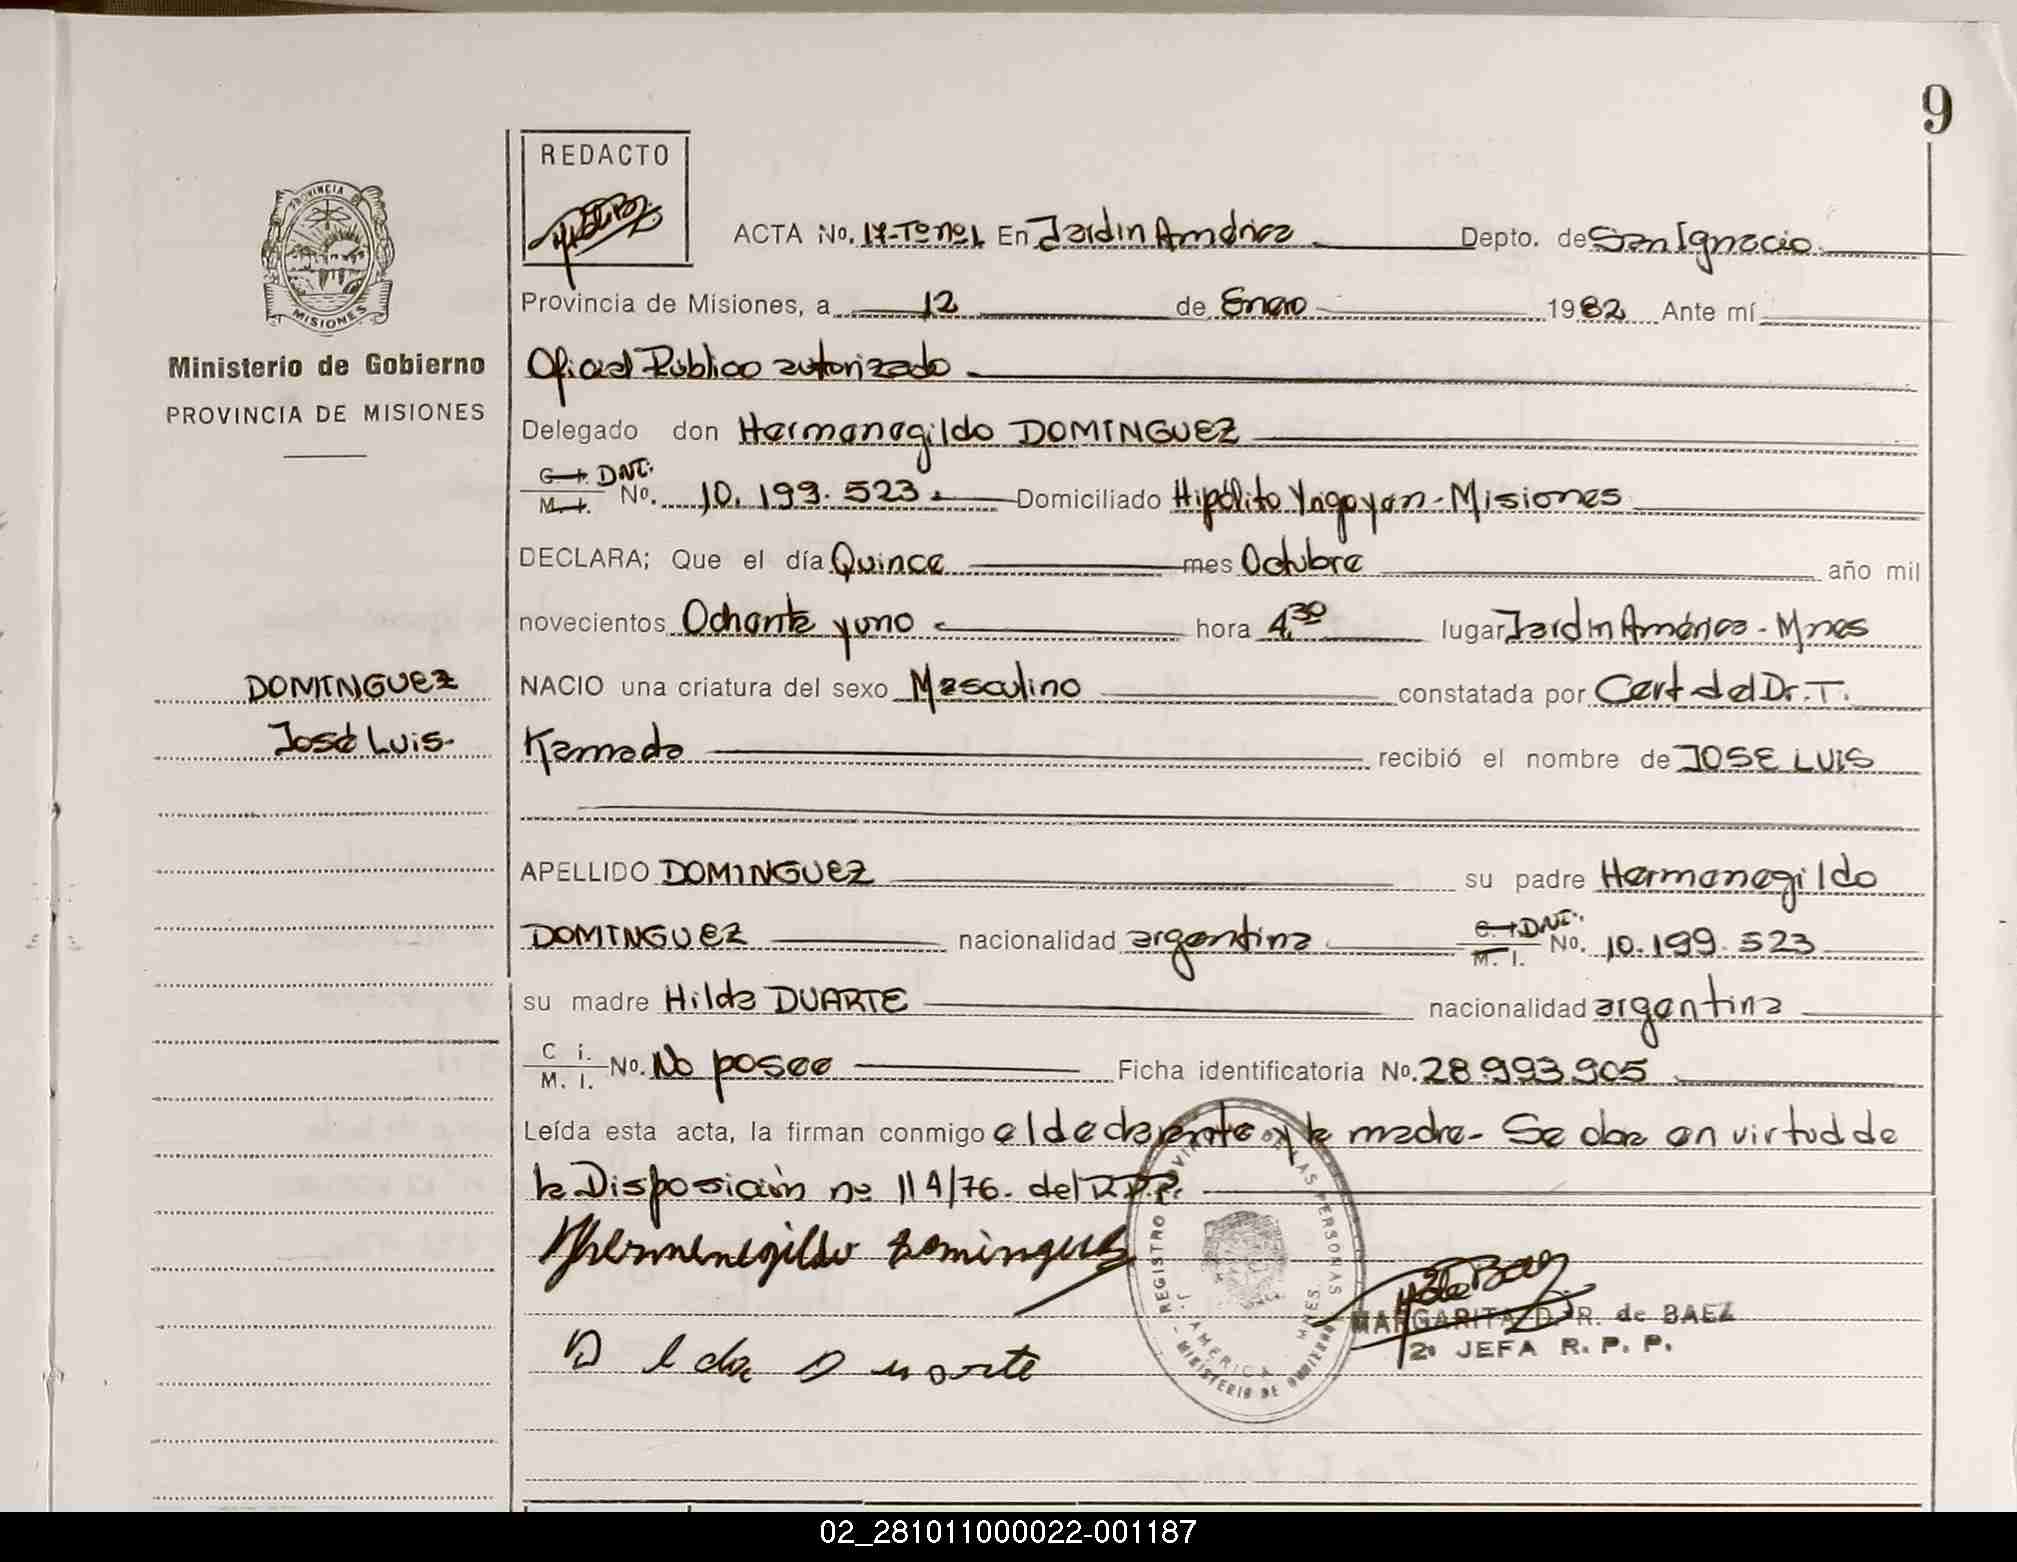 9
REDACTO
ACTA No. 17-Tº nº1 En Jardín América Depto. de San Ignacio
Provincia de Misiones, a 12 de Enero 1982 Ante mí
Oficial Público autorizado
PROVINCIA DE
MISIONES
Ministerio de Gobierno
PROVINCIA DE MISIONES
Delegado don Hermenegildo DOMINGUEZ
C. I. DNI.
M. I. No. 10.199.523. Domiciliado Hipólito Yrigoyen - Misiones
DECLARA; Que el día Quince mes Octubre año mil
novecientos Ochenta y uno hora 4,30 lugar Jardín América - Mnes
DOMINGUEZ
José Luis.
NACIO una criatura del sexo Masculino constatada por Cert del Dr. T.
Kamada recibió el nombre de JOSE LUIS
APELLIDO DOMINGUEZ su padre Hermenegildo
DOMINGUEZ nacionalidad argentina C. I. DNI. M. I. No. 10.199.523
su madre Hilda DUARTE nacionalidad argentina
C. i.
M. I. No. No posee Ficha identificatoria No. 28.993.905
Leída esta acta, la firman conmigo el declarante y la madre - Se labra en virtud de
la Disposición nº 114/76. del R.P.P.
Hermenegildo Dominguez
REGISTRO PROVINCIAL DE LAS PERSONAS
J. AMERICA MNES.
MINISTERIO DE GOBIERNO
MARGARITA D. R. de BAEZ
2º JEFA R. P. P.
Duarte
02_281011000022-001187